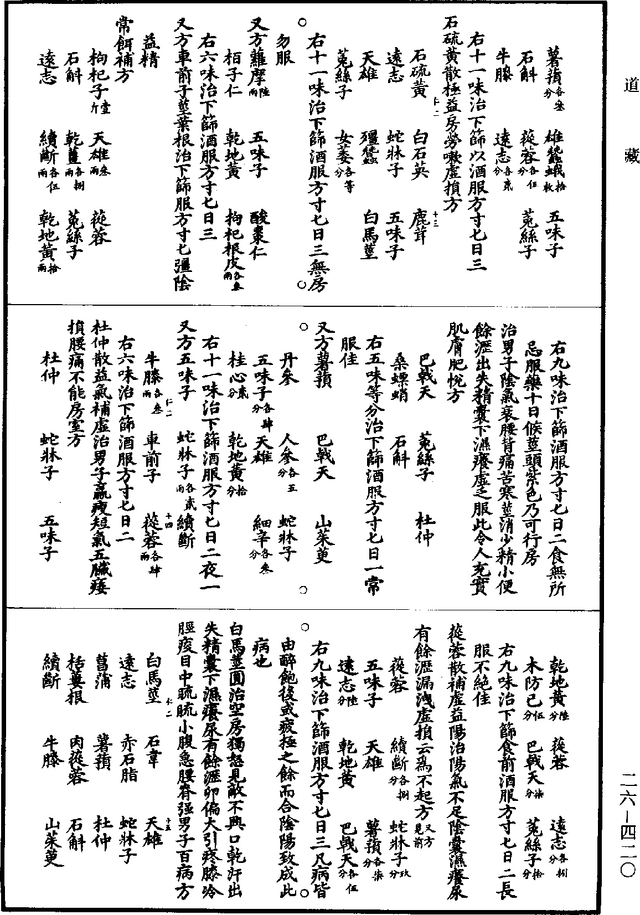 道藏
薯蕷各叁分 雄蠶蛾拾枚 五味子
石斛 蓯蓉各伍分 菟絲子
牛膝 遠志各貳分
右十一味治下篩以酒服方寸匕日三
石硫黃散極益房勞嗽虛損方
石硫黃 白石英 鹿茸
遠志 蛇牀子 五味子
天雄 殭蠶 白馬莖
菟絲子 女萎各等分
右十一味治下篩酒服方寸匕日三無房
勿服
又方蘿摩陸兩 五味子 酸棗仁
柏子仁 乾地黃 枸杞根皮各叁兩
右六味治下篩酒服方寸匕日三
又方車前子莖葉根治下篩服方寸匕彊陰
益精
常餌補方
枸杞子壹斤 天雄叁兩 蓯蓉
石斛 乾薑各捌兩 菟絲子
遠志 續斷各伍兩 乾地黃拾兩
右九味治下篩酒服方寸匕日二食無所
忌服藥十日候莖頭紫色乃可行房
治男子陰氣衰腰背痛苦寒莖消少精小便
餘瀝出失精囊下濕癢虛乏服此令人充實
肌膚肥悅方
巴戟天 菟絲子 杜仲
桑螵蛸 石斛
右五味等分治下篩酒服方寸匕日一常
服佳
又方薯蕷 巴戟天 山茱萸
丹參 人參各五 蛇牀子
五味子各肆分 天雄 細辛各叁分
桂心貳分 乾地黃拾分
右十一味治下篩酒服方寸匕日二夜一
又方五味子 蛇牀子各貳兩 續斷
牛膝各叁兩 車前子 蓯蓉各肆兩
右六味治下篩酒服方寸匕日二
杜仲散益氣補虛治男子羸瘦短氣五臟痿
損腰痛不能房室方
杜仲 蛇牀子 五味子
乾地黃陸分 蓯蓉 遠志各捌分
木防己伍分 巴戟天柒分 菟絲子拾分
右九味治下篩食前酒服方寸匕日二長
服不絕佳
蓯蓉散補虛益陽治陽氣不足陰囊濕癢尿
有餘瀝漏洩虛損云爲不起方又方見前
蓯蓉 續斷各捌分 蛇牀子玖分
五味子 天雄 薯蕷各柒分
遠志陸分 乾地黃 巴戟天各伍分
右九味治下篩酒服方寸匕日三凡病皆
由醉飽後或疲極之餘而合陰陽致成此
病也
白馬莖圓治空房獨怒見敵不興口乾汗出
失精囊下濕癢尿有餘瀝卵偏大引疼膝冷
脛痠目中䀮䀮小腹急腰脊強男子百病方
白馬莖 石韋 天雄
遠志 赤石脂 蛇牀子
菖蒲 薯蕷 杜仲
栝蔞根 肉蓯蓉 石斛
續斷 牛膝 山茱萸
二六—四二〇